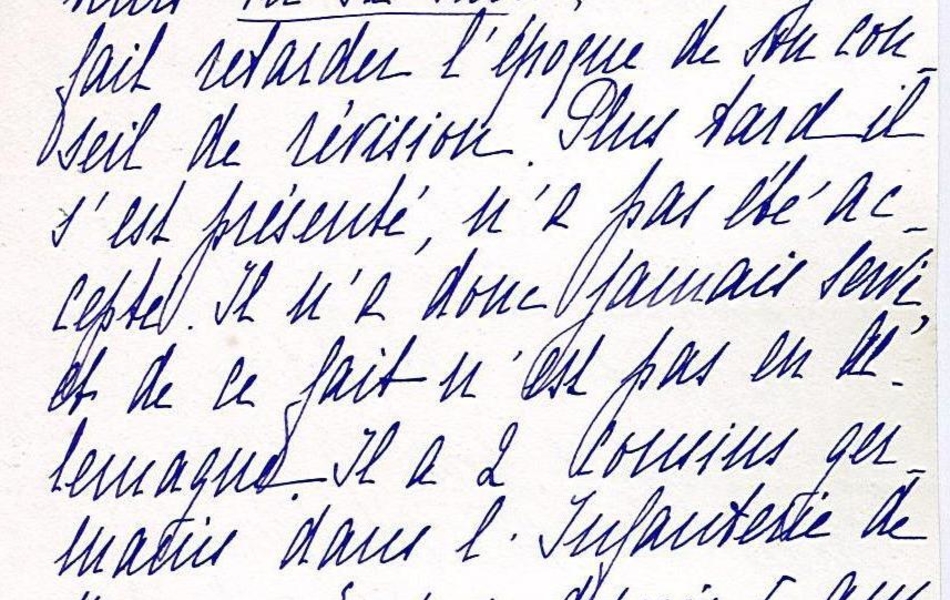 fait retarder l'époque de son con-
seil de révision. Plus tard il
s'est présenté, n'a pas été ac-
cepté. Il n'a donc jamais servi,
et de ce fait n'est pas en Al-
lemagne. Il a 2 cousins ger-
mains dans l'Infanterie de